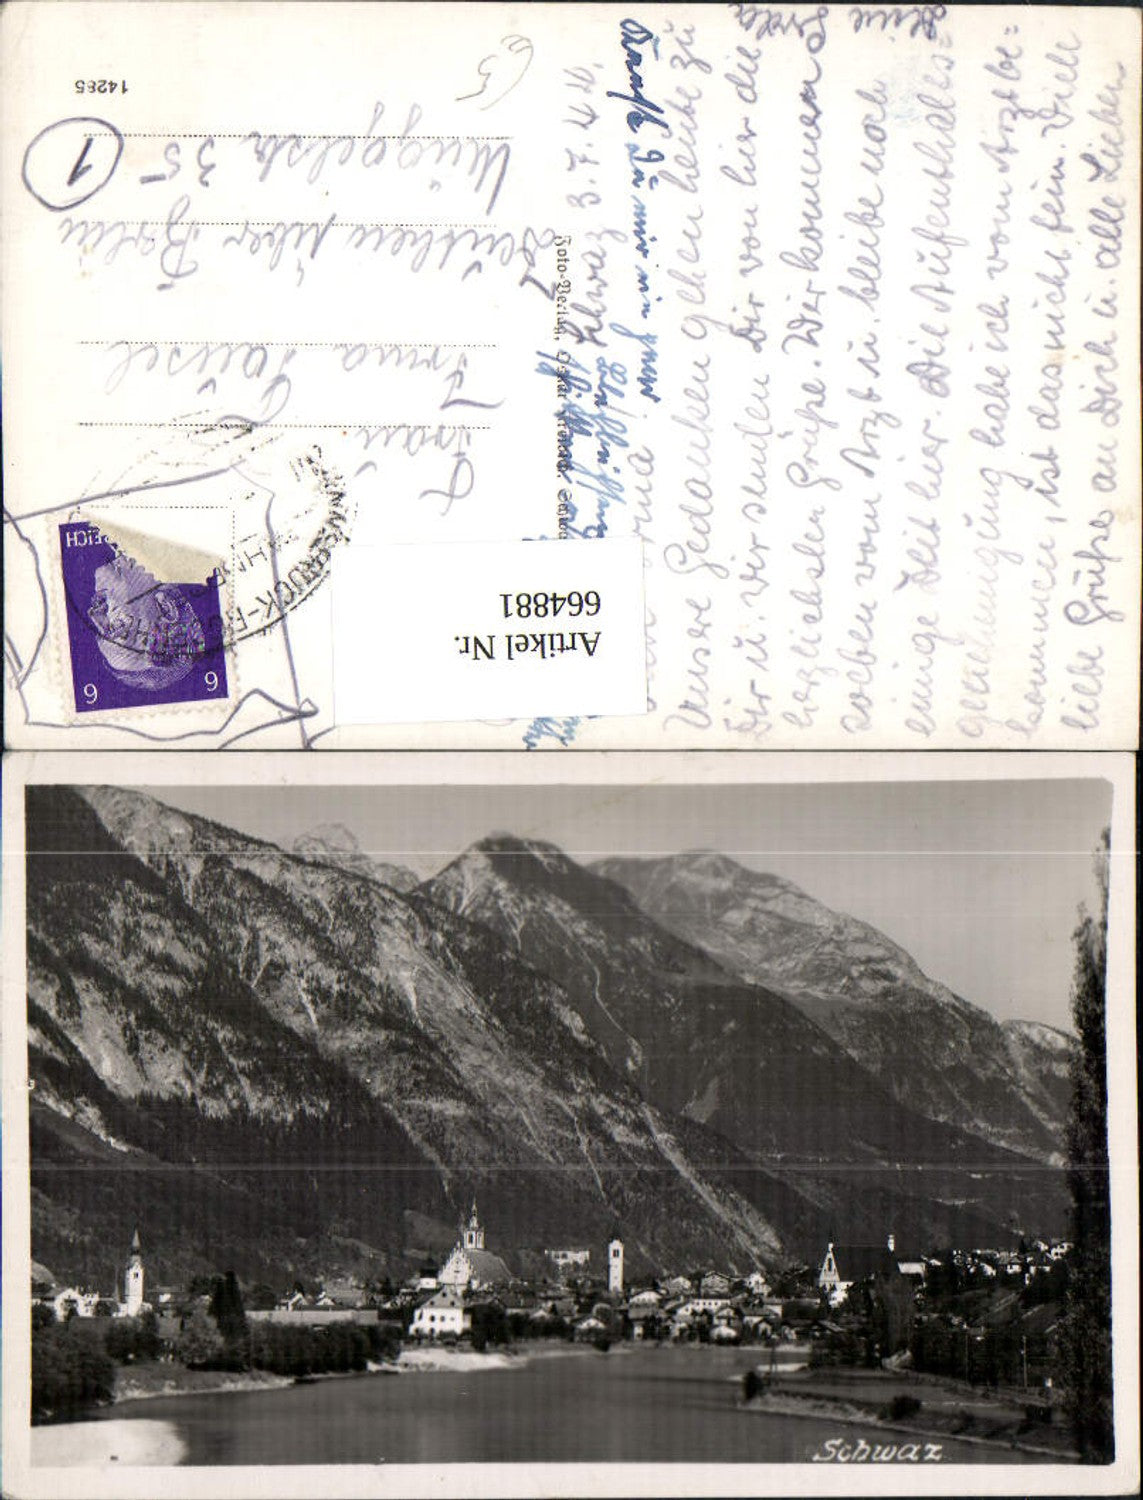 14285
1
Frau
Irma
über Berlin
Müggelstr 35
Schwaz 3.7.44.
Unsere Gedanken gehen heute zu
Dir u. wir senden Dir von hier die
herzlichsten Grüße. Wir kommen
soeben vom Arzt u. bleibe noch
einige Zeit hier. Die Aufenthalts=
genehmigung habe ich vom Arzt be=
kommen, ist das nicht fein. Viele
liebe Grüße an Dich u. alle Lieben
Deine
Foto-Verlag,
REICH
6 6
Artikel Nr.
664881
Schwaz